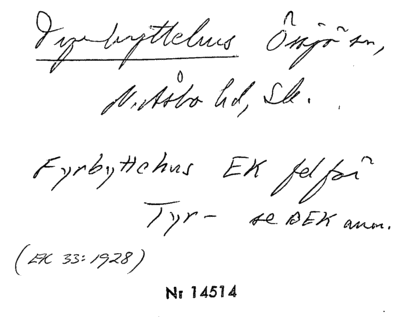 Tyrbyttehus Önnjö sn,
N. Åsbo hd, Sk.
Fyrbyttehus EK fel för
Tyr- se BEK anm.
(EK 33: 1928)
Nr 14514